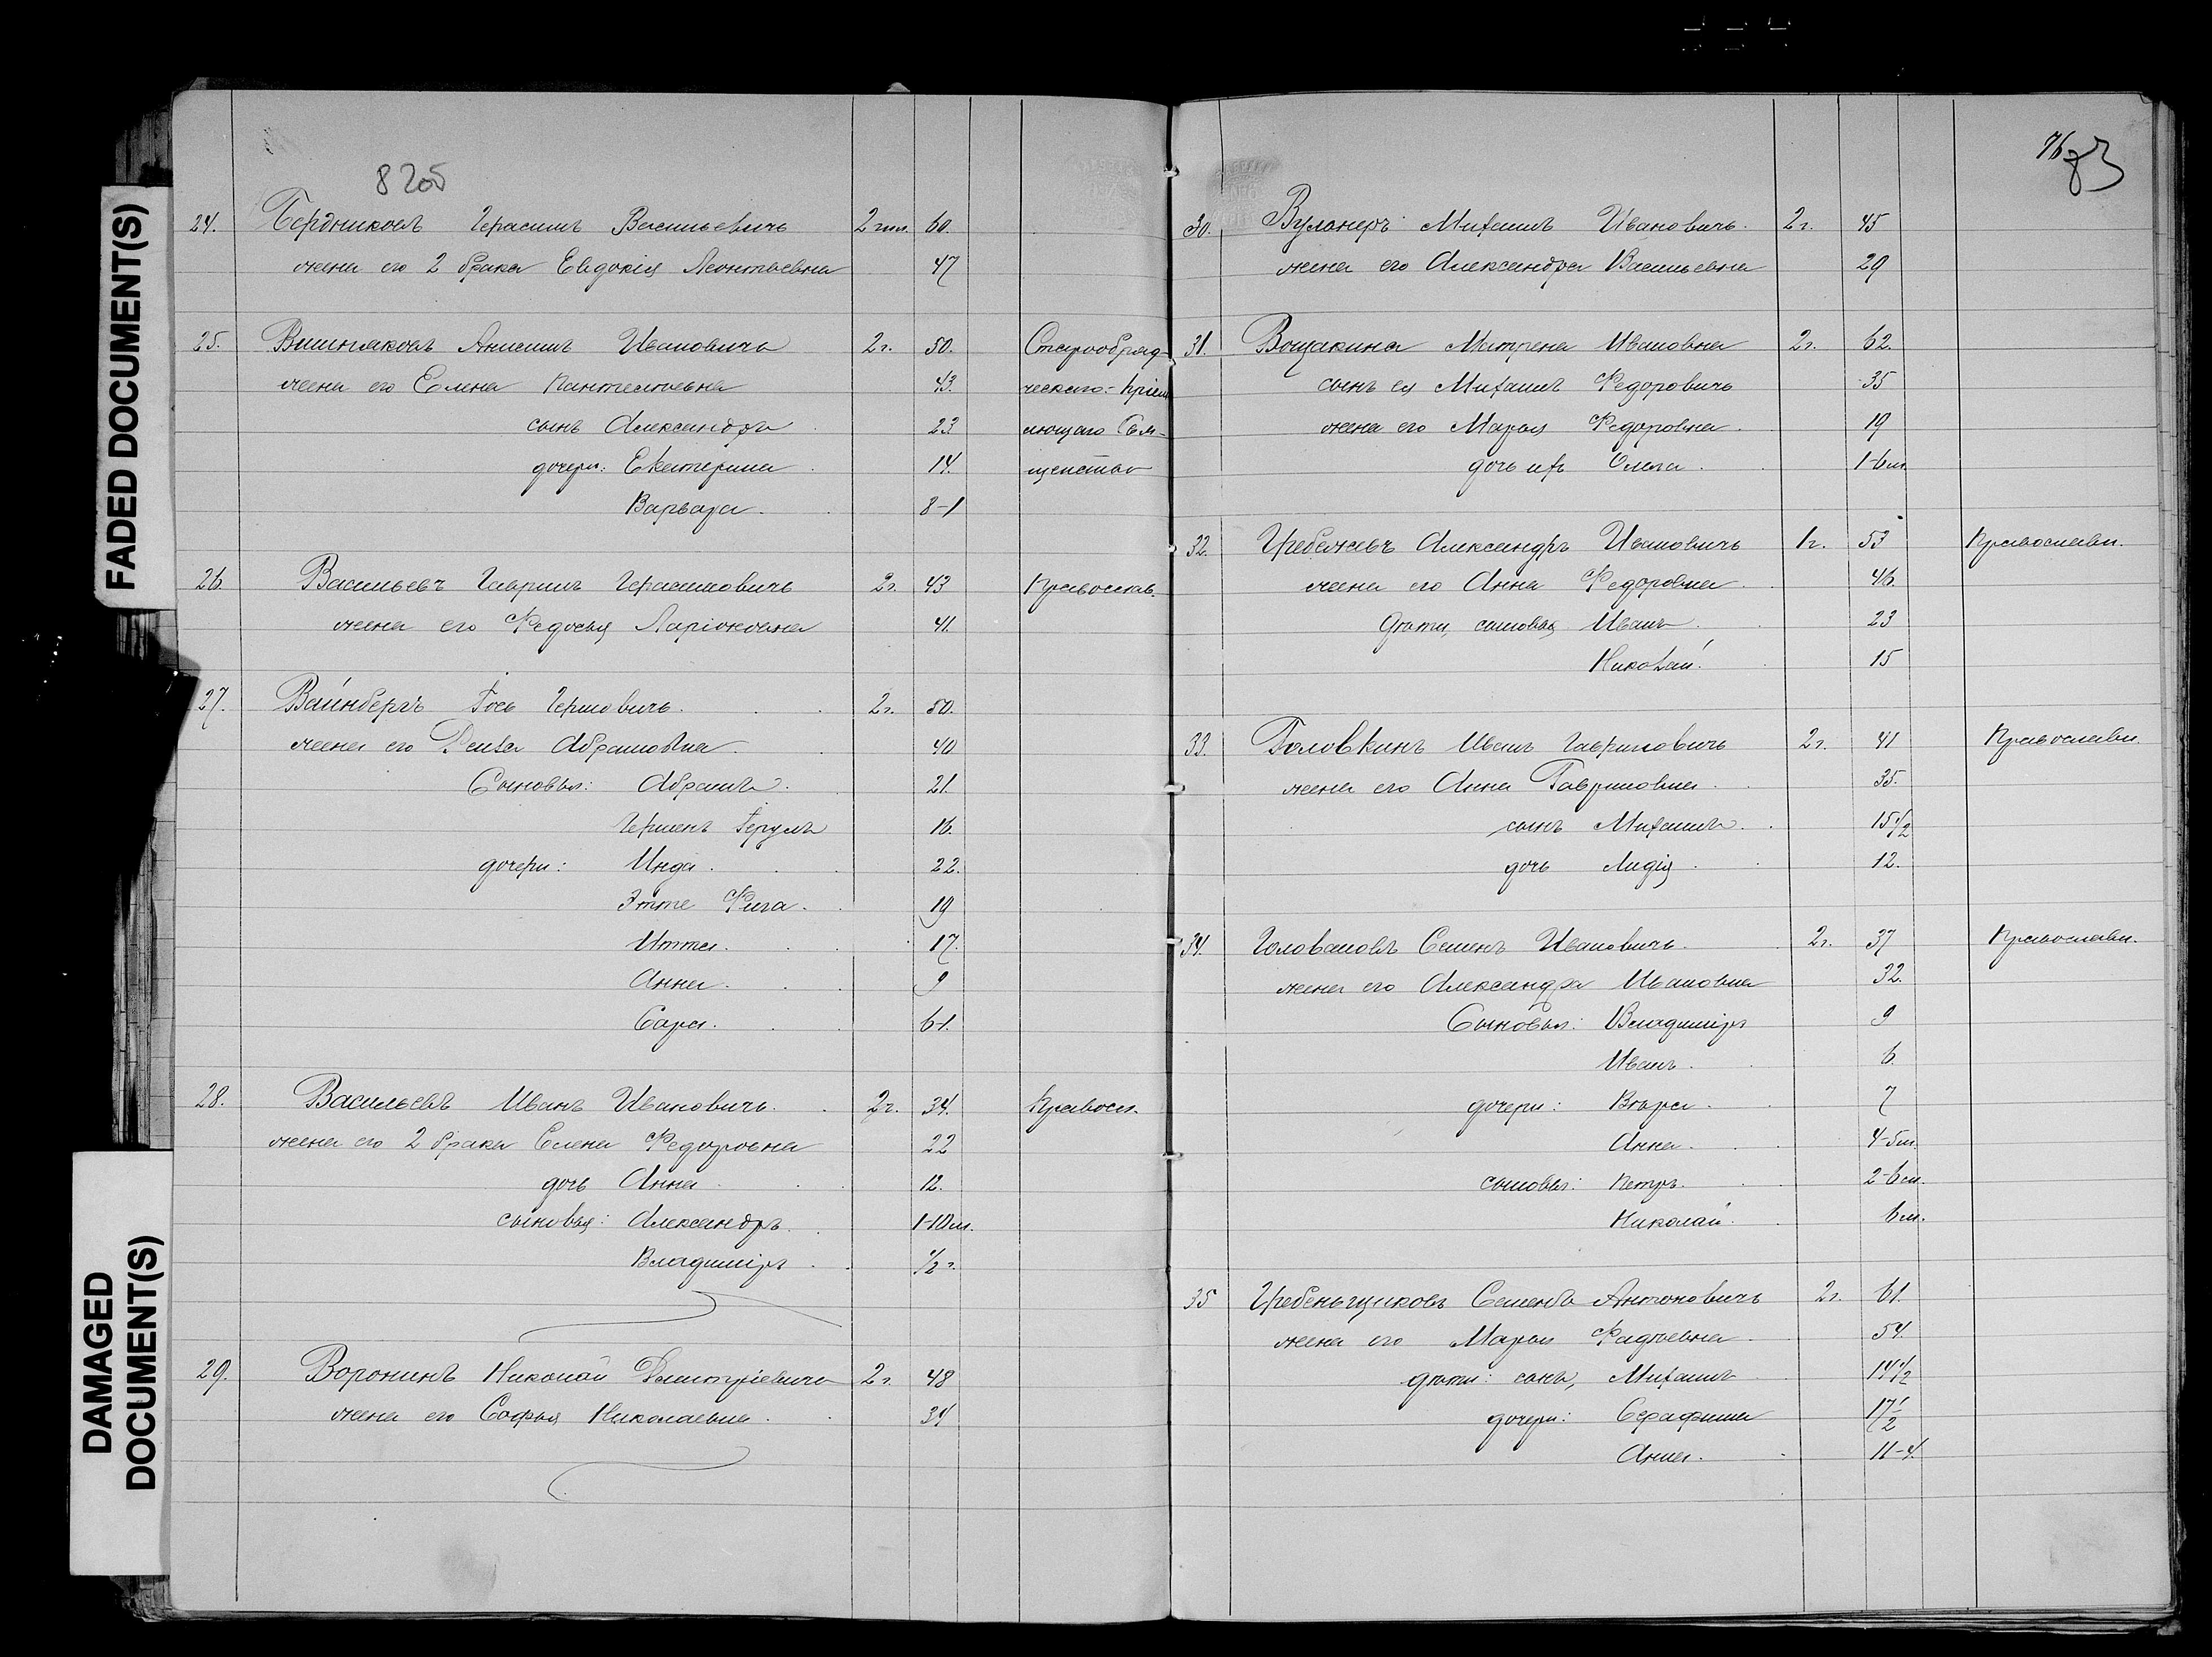 8205
24. Бердниковъ Герасимъ Васильевичъ 2 гил. 60.
жена его 2 брака Евдокія Леонтьевна 47
25. Вишняковъ Анисимъ Ивановичъ 2 г. 50. Старообряд-
жена его Елена Пантелѣевна 43. ческаго-пріем
сынъ Александръ 23 лющаго Свя-
дочери: Екатерина 14. щенство
Варвара 8-1
26. Васильевъ Гаврилъ Герасимовичъ 2 г. 43 Православ.
жена его Федосья Ларіоновна 41.
27. Вайнбергъ Іось Гершовичъ 2 г. 50.
жена его Абрамовна 40
Сыновья: Абрамъ 21.
Гершенъ 16.
дочери: Инда 22.
Этте Фига 19
Итта 17.
Анна 9
Сара 6-1.
28. Васильевъ Иванъ Ивановичъ 2 г. 34. Правосл.
жена его 2 брака Елена Федоровна 22
дочь Анна 12.
сыновья: Александръ 1-10 м.
Владиміръ 1/2 г.
29. Воронинъ Николай Дмитріевичъ 2 г. 48
жена его Софья Николаевна 34
76
83
30. Вуланеръ Михаилъ Ивановичъ 2 г. 45
жена его Александра Васильевна 29
31. Вощакина Матрена Ивановна 2 г. 62.
сынъ ея Михаилъ Федоровичъ 35
жена его Марья Федоровна 19
дочь ихъ Ольга 1-6 м.
32. Гребежевъ Александръ Ивановичъ 1 г. 53 Православн.
жена его Анна Федоровна 46.
Дѣти, сыновья Иванъ 23
Николай 15
33. Головкинъ Иванъ Гавриловичъ 2 г. 41 Православн.
жена его Анна Гавриловна 35.
сынъ Михаилъ 15 1/2
дочь Лидія 12.
34. Головановъ Семенъ Ивановичъ 2 г. 37 Православн.
жена его Александра Ивановна 32.
Сыновья: Владиміръ 9
Иванъ 6.
дочери: Вѣра 7
Анна 4-5 м.
сыновья: Петръ 2-6 м.
Николай 6 м.
35 Гребеньщиковъ Семенъ Антоновичъ 2 г. 61.
жена его Марья Фадѣевна 54.
дѣти: сынъ, Михаилъ 14 1/2
дочери: Серафима 17 1/2
Анна 11-4.
FADED DOCUMENT(S)
DAMAGED
DOCUMENT(S)